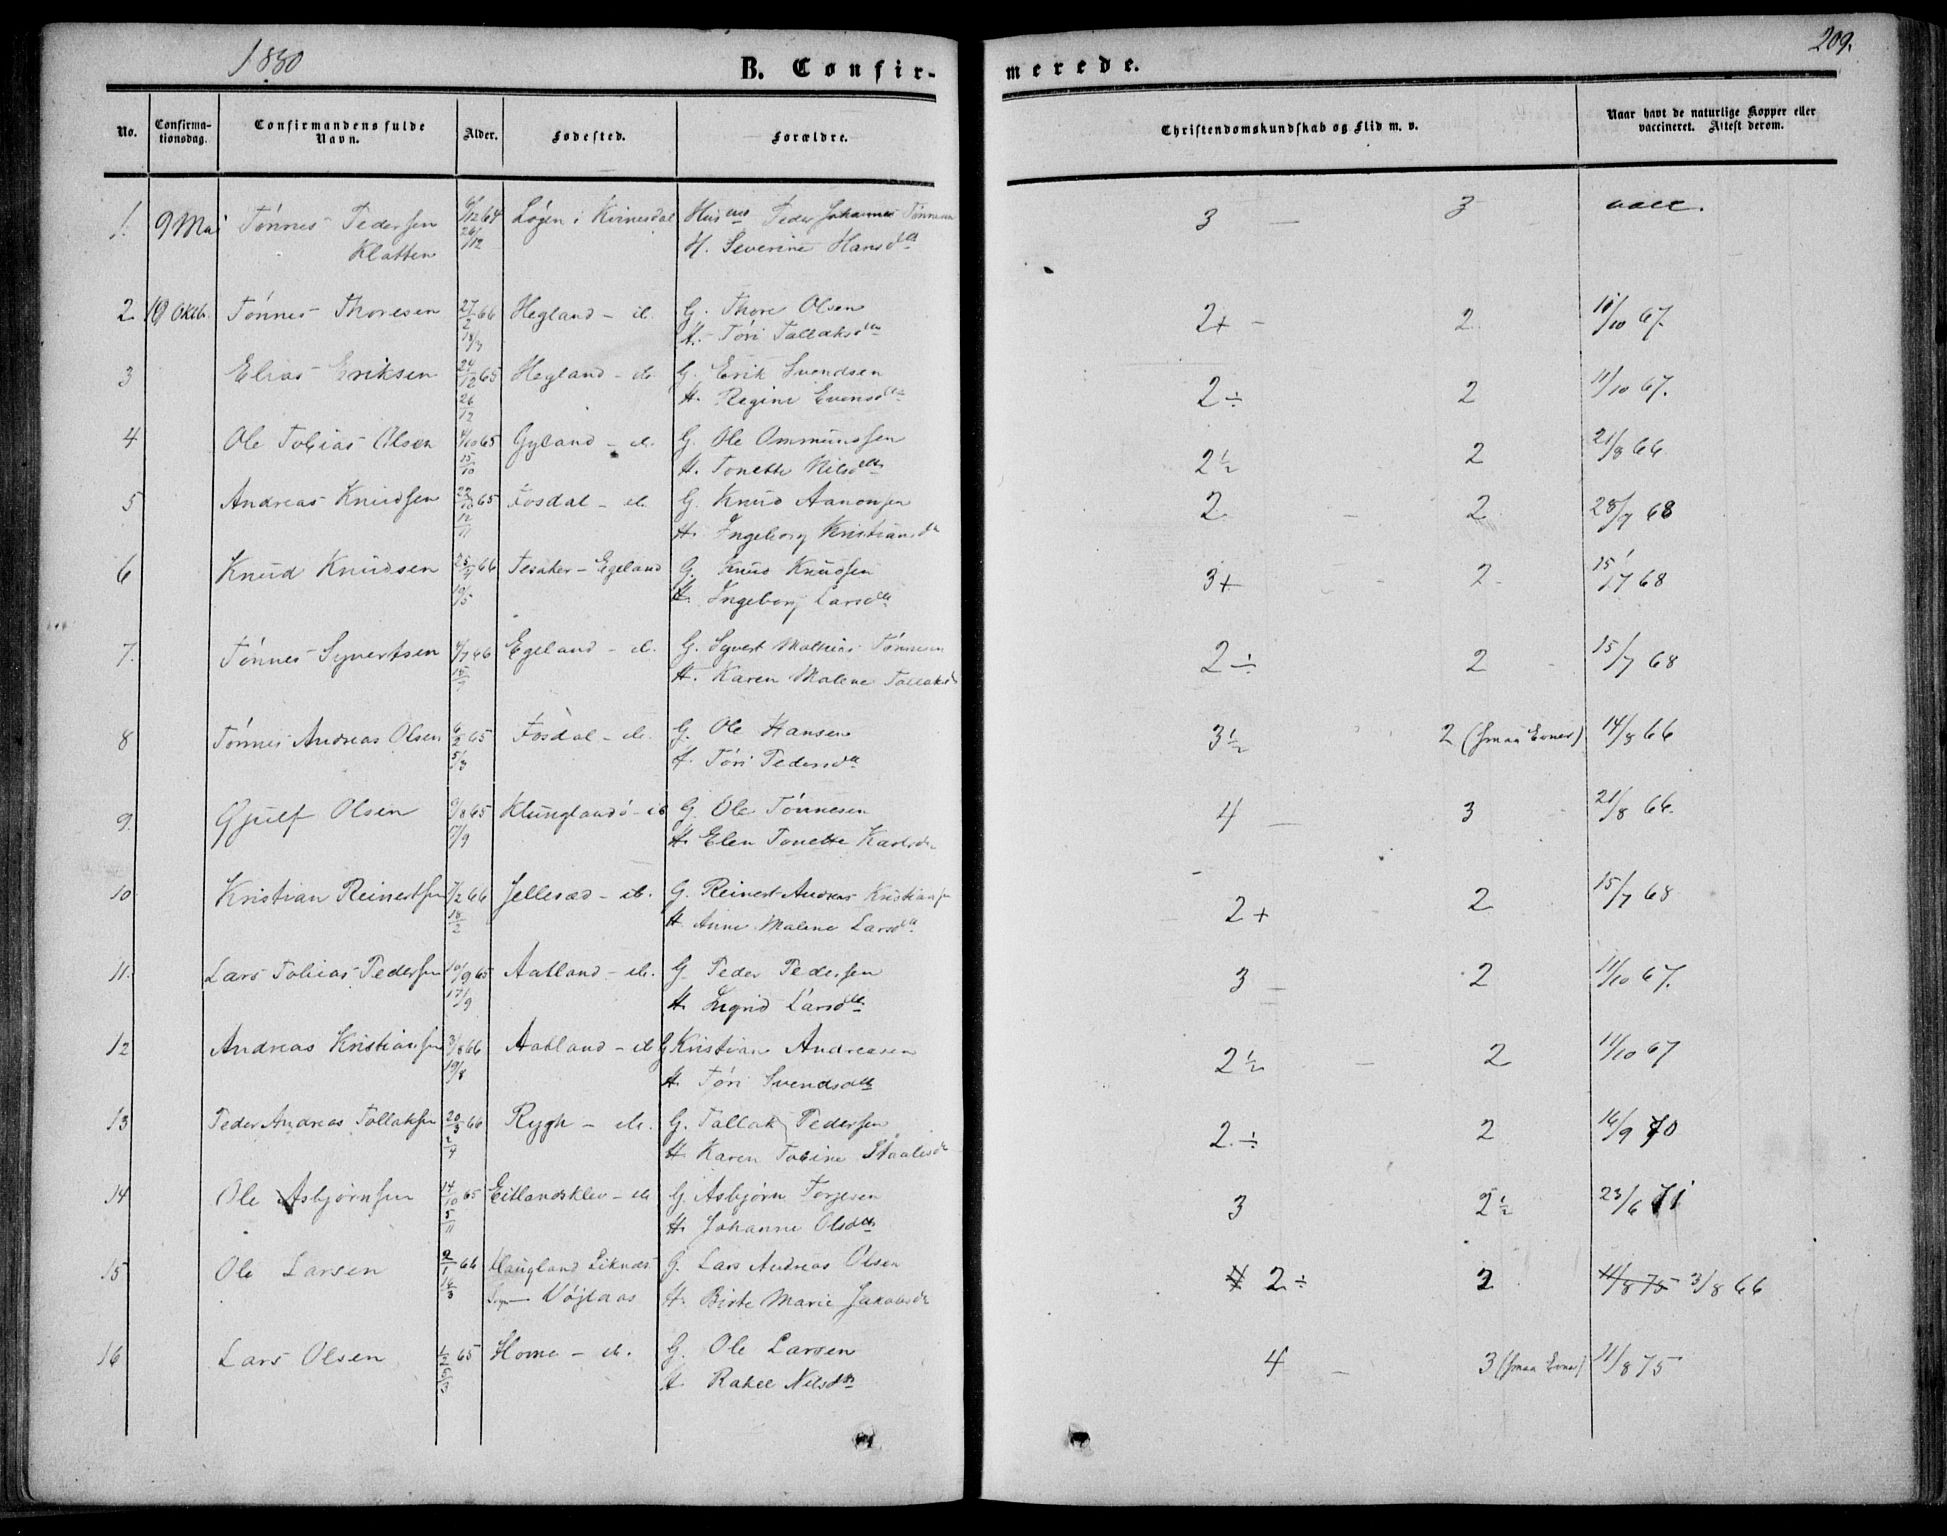 1880
209.
B. Confir-
merede.
No.
Confirma-
tionsdag.
Confirmandens fulde
Navn.
Alder.
Fødested.
Forældre.
Christendomskundskab og Flid m. v.
Naar havt de naturlige Kopper eller
vaccineret. Attest derom.
1. 9 Mai Tønnes Pedersen 64 i Kvinesdal Peder Johannes Tønnesen 3 — 3 vacc.
Klatten 26/12 H. Severine Hansdtr
2 Oktb. Tønnes Thoresen 27/2 66 Hegland - ib. G. Thore Olsen 2+ - 2 11/10 67.
18/3 H. Tøri Tallaksdtr
3 Elias Eriksen 24/12 65 Hegland - ib. G. Erik Svendsen 2÷ 2 11/10 67.
26/12 H. Regine Evensdtr
4 Ole Tobias Olsen 4/10 65 Gyland - ib. G. Ole Ommundsen 2½ 2 21/8 66
15/10 H. Tonette Nilsdtr
5 Andreas Knudsen 65 Fosdal - ib. G. Knud Aanonsen 2 - 2 28/7 68
12/11 H. Ingeborg Kristiansdtr
6 Knud Knudsen 25/4 66 Tesaker - Egeland G. Knud Knudsen 3+ - 2 15/7 68
10/5 H. Ingeborg Larsdtr
7. Tønnes Syvertsen 4/7 66 Egeland - ib. G. Syvert Mathias Tønnesen 2÷ 2 - 15/7 68
H. Karen Malene Tallaksd
8 Tønnes Andreas Olsen 6/2 65 Fosdal - ib. G. Ole Hansen 3½ 2 (smaa Evner) 14/8 66
5/3 H. Tøri Pedersdtr
9. Gjulf Olsen 65 Klungland - ib G. Ole Tønnesen 4 — 3 21/8 66.
17/9 H. Elen Tonette Karlsdr
10 Kristian Reinertsen 7/2 66 Jellesæd - ib. G. Reinert Andreas Kristiansen 2+ - 2 15/7 68
18/2 H. Anne Malene Larsdtr
11. Lars Tobias Pedersen 10/9 65 Aatland - ib. G. Peder Pedersen 3 — 2 11/10 67.
17/9 H. Sigrid Larsdtr
12 Andreas Kristiansen 3/8 66 Aatland - ib G Kristian Andreasen 2½ - 2 11/10 67
19/8 H. Tøri Svendsdtr
13 Peder Andreas Tallaksen 20/3 66 Rygh - ib. G. Tallak Pedersen 2÷ 2 16/9 70
2/4 H. Karen Tobine Staalesd
14 Ole Asbjørnsen 14/10 65 Eitlandsklev - ib G. Asbjørn Torjesen 3 2½ 23/6 71
5/11 H. Johanne Olsdtr
15 Ole Larsen 2/1 66 Haugland Liknes G. Lars Andreas Olsen 2÷ 2 11/8 75 3/8 66
18/3 Sogn H. Birte Marie Jakobsdr
16 Lars Olsen 1/2 65 Home - ib. G. Ole Larsen 4 — 3 (smaa Evner) 11/8 75
H. Rakel Nilsdtr